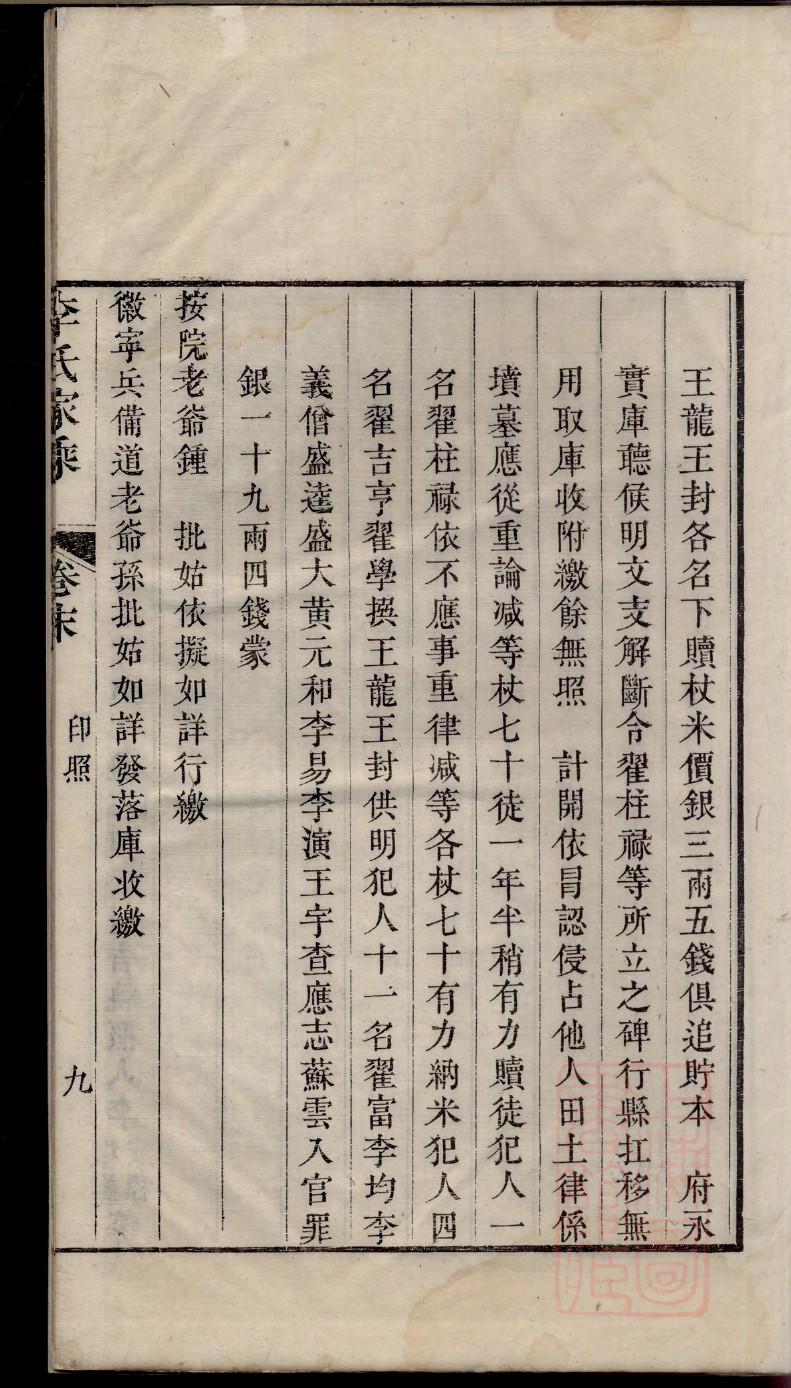 王龍王封各名下贖杖米價銀三兩五錢俱追貯本 府永
實庫聽候明文支解斷令翟柱祿等所立之碑行縣扛移無
用取庫收附繳餘無照 計開依冐認侵占他人田土律係
墳墓應從重論减等杖七十徒一年半稍有力贖徒犯人一
名翟柱祿依不應事重律减等各杖七十有力納米犯人四
名翟吉亨翟學撰王龍王封供明犯人十一名翟富李均李
義僧盛逵盛大黄元和李易李演王宇查應志蘇雲入官罪
銀一十九兩四錢蒙
按院老爺鍾 批姑依擬如詳行繳
徽寧兵備道老爺孫批姑如詳發落庫收繳
李氏家乘 卷末 印照 九